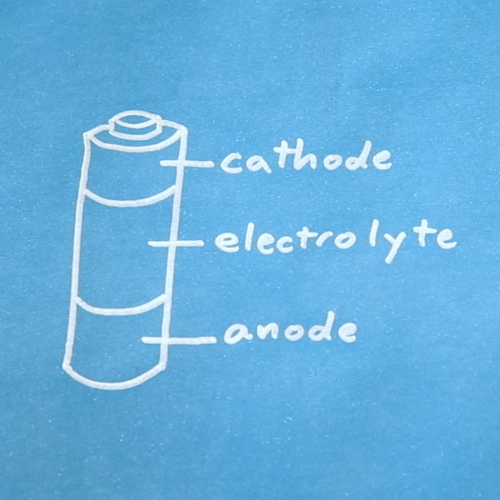 cathode
electrolyte
anode